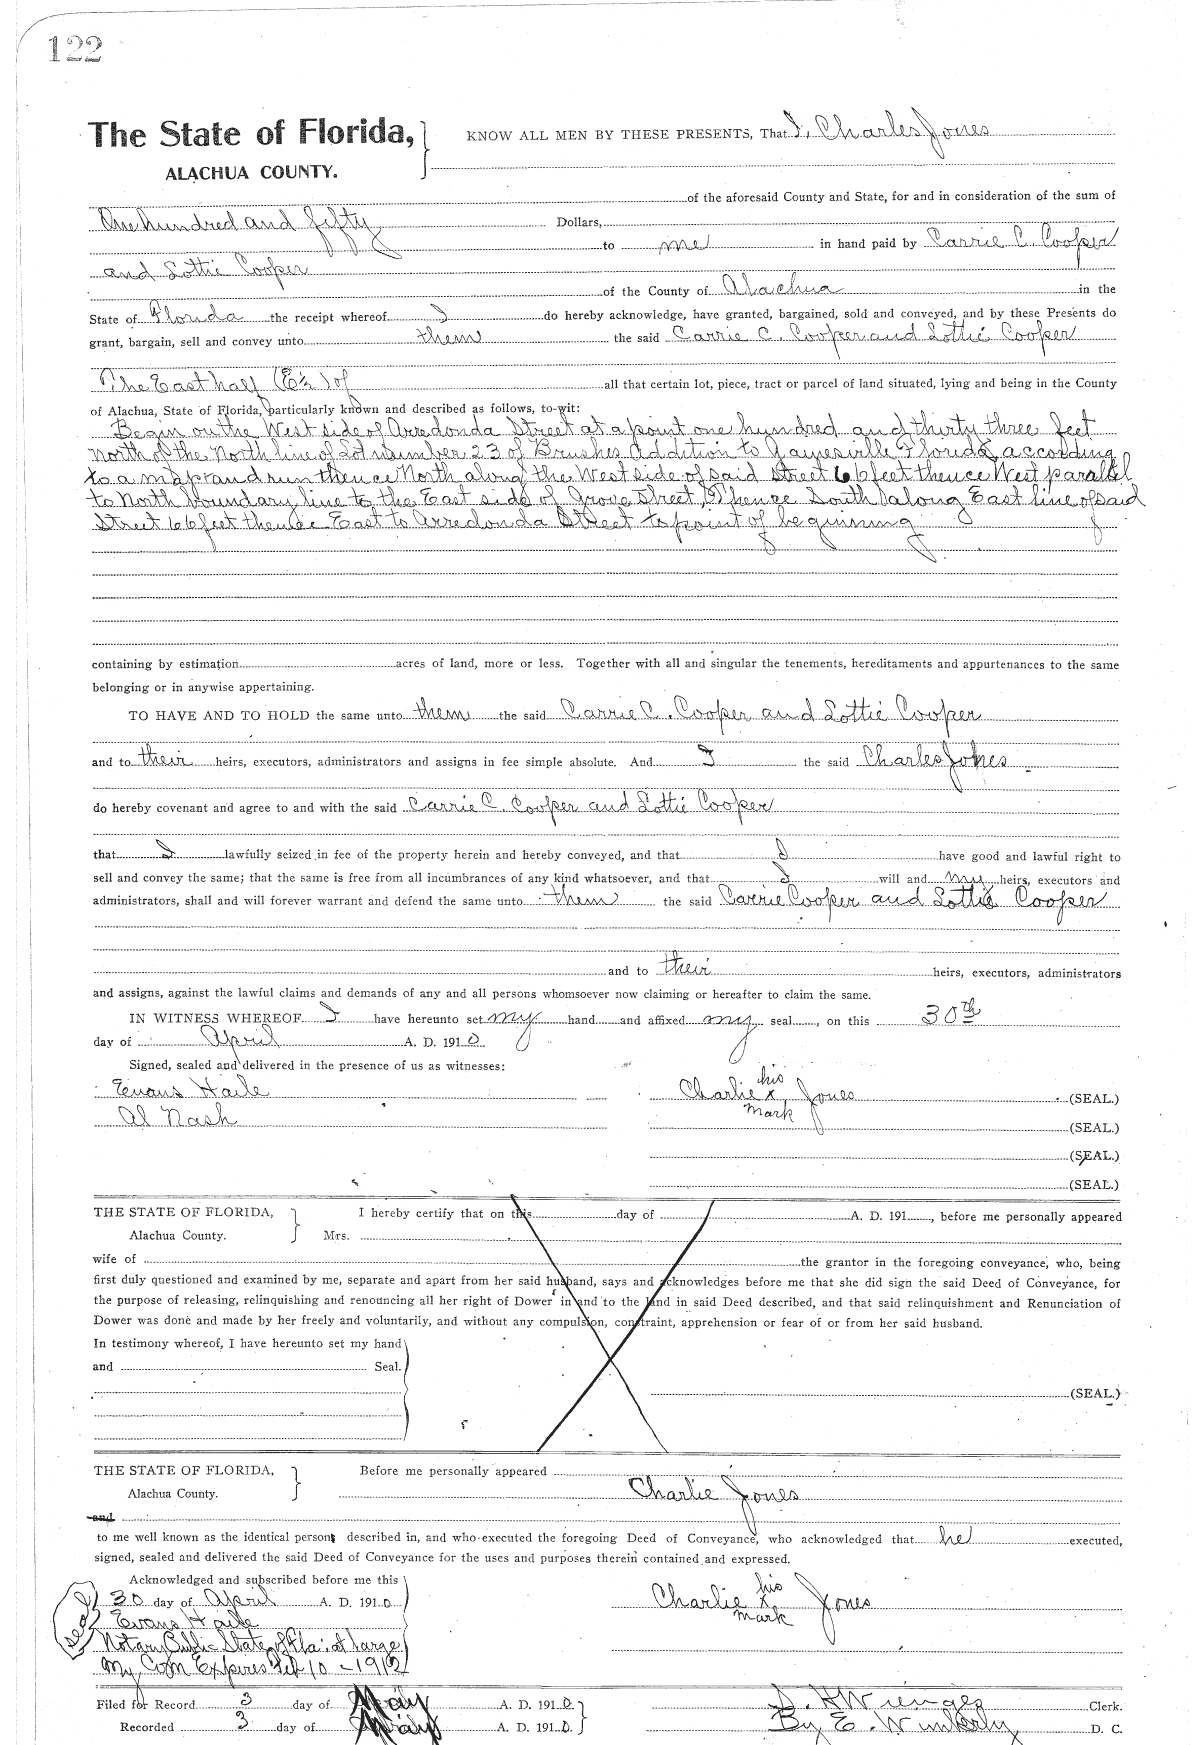 122
The State of Florida,
ALACHUA COUNTY.
KNOW ALL MEN BY THESE PRESENTS, That I, Charles Jones
of the aforesaid County and State, for and in consideration of the sum of
One hundred and fifty Dollars,
to me in hand paid by Carrie C. Cooper
and Lottie Cooper
of the County of Alachua in the
State of Florida the receipt whereof I do hereby acknowledge, have granted, bargained, sold and conveyed, and by these Presents do
grant, bargain, sell and convey unto them the said Carrie C. Cooper and Lottie Cooper
The East half (E½) of all that certain lot, piece, tract or parcel of land situated, lying and being in the County
of Alachua, State of Florida, particularly known and described as follows, to-wit:
Begin on the West side of Arredonda Street at a point one hundred and thirty three feet
north of the North line of Lot number 23 of Brushes Addition to Gainesville Florida, according
to a map and run thence North along the West side of said Street 66 feet thence West parallel
to North boundary line to the East side of Grove Street, Thence South along East line of said
Street 66 feet thence East to Arredonda Street to point of beginning
containing by estimation acres of land, more or less. Together with all and singular the tenements, hereditaments and appurtenances to the same
belonging or in anywise appertaining.
TO HAVE AND TO HOLD the same unto them the said Carrie C. Cooper and Lottie Cooper
and to their heirs, executors, administrators and assigns in fee simple absolute. And I the said Charles Jones
do hereby covenant and agree to and with the said Carrie C. Cooper and Lottie Cooper
that I lawfully seized in fee of the property herein and hereby conveyed, and that I have good and lawful right to
sell and convey the same; that the same is free from all incumbrances of any kind whatsoever, and that I will and my heirs, executors and
administrators, shall and will forever warrant and defend the same unto them the said Carrie Cooper and Lottie Cooper
and to their heirs, executors, administrators
and assigns, against the lawful claims and demands of any and all persons whomsoever now claiming or hereafter to claim the same.
IN WITNESS WHEREOF I have hereunto set my hand and affixed my seal, on this 30th
day of April A. D. 1910.
Signed, sealed and delivered in the presence of us as witnesses:
Evans Haile
Al Nash
his
Charlie x Jones (SEAL.)
mark
(SEAL.)
(SEAL.)
(SEAL.)
THE STATE OF FLORIDA,
Alachua County.
I hereby certify that on this day of A. D. 191 , before me personally appeared
Mrs.
wife of the grantor in the foregoing conveyance, who, being
first duly questioned and examined by me, separate and apart from her said husband, says and acknowledges before me that she did sign the said Deed of Conveyance, for
the purpose of releasing, relinquishing and renouncing all her right of Dower in and to the land in said Deed described, and that said relinquishment and Renunciation of
Dower was done and made by her freely and voluntarily, and without any compulsion, constraint, apprehension or fear of or from her said husband.
In testimony whereof, I have hereunto set my hand
and Seal.
(SEAL.)
THE STATE OF FLORIDA,
Alachua County.
Before me personally appeared
Charlie Jones
and
to me well known as the identical person described in, and who executed the foregoing Deed of Conveyance, who acknowledged that he executed,
signed, sealed and delivered the said Deed of Conveyance for the uses and purposes therein contained and expressed.
Acknowledged and subscribed before me this
30 day of April A. D. 1910
Seal
Evans Haile
Notary Public State of Fla. at large
My Com Expires Feb 10 - 1912
his
Charlie x Jones
mark
Filed for Record 3 day of May A. D. 1910
Recorded 3 day of May A. D. 1910
S. H. Wienges Clerk.
By E. Wimberly D. C.